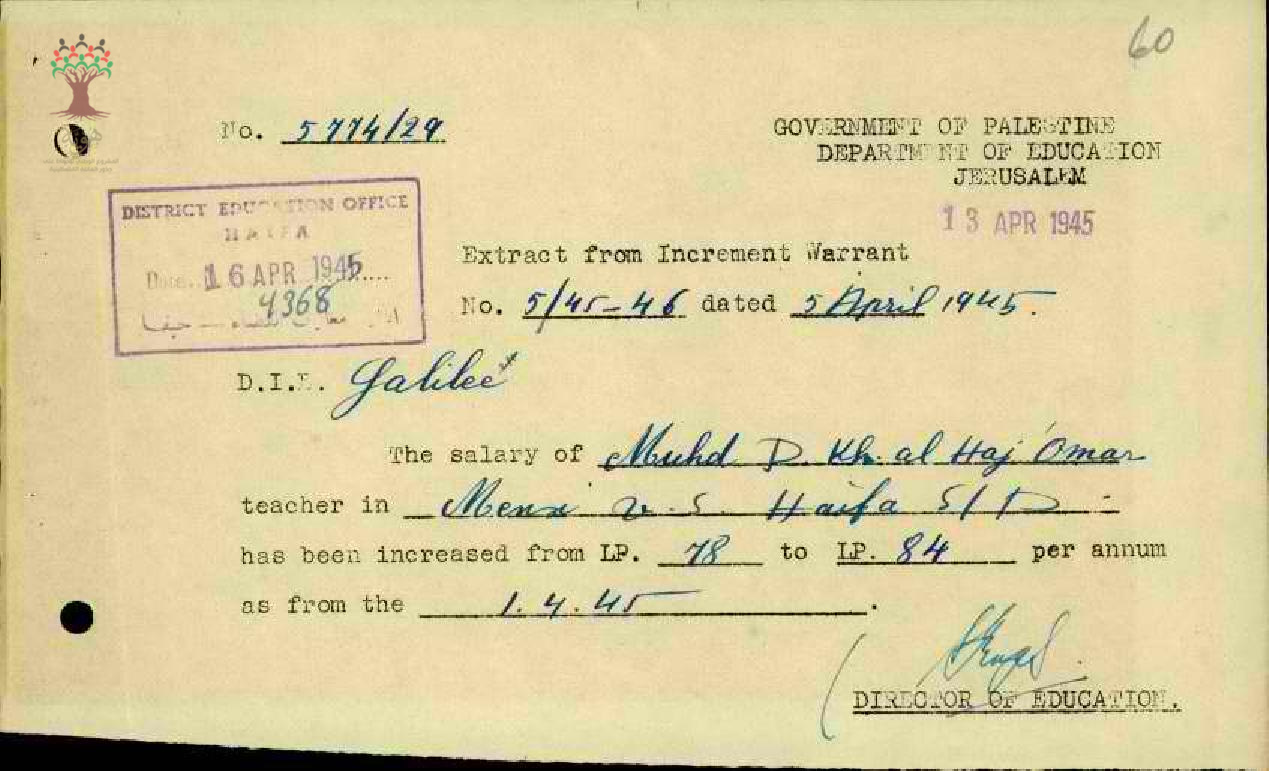 60
No. 5774/29
GOVERNMENT OF PALESTINE
DEPARTMENT OF EDUCATION
JERUSALEM
13 APR 1945
DISTRICT EDUCATION OFFICE
HAIFA
Date. 16 APR 1945
4368
حيفا
Extract from Increment Warrant
No. 5/45-46 dated 5 April 1945.
D.I.E. Galilee
The salary of Muhd D. Kh. al Haj Omar
teacher in Mensi v. S. Haifa S/D
has been increased from LP. 78 to LP. 84 per annum
as from the 1.4.45.
DIRECTOR OF EDUCATION.